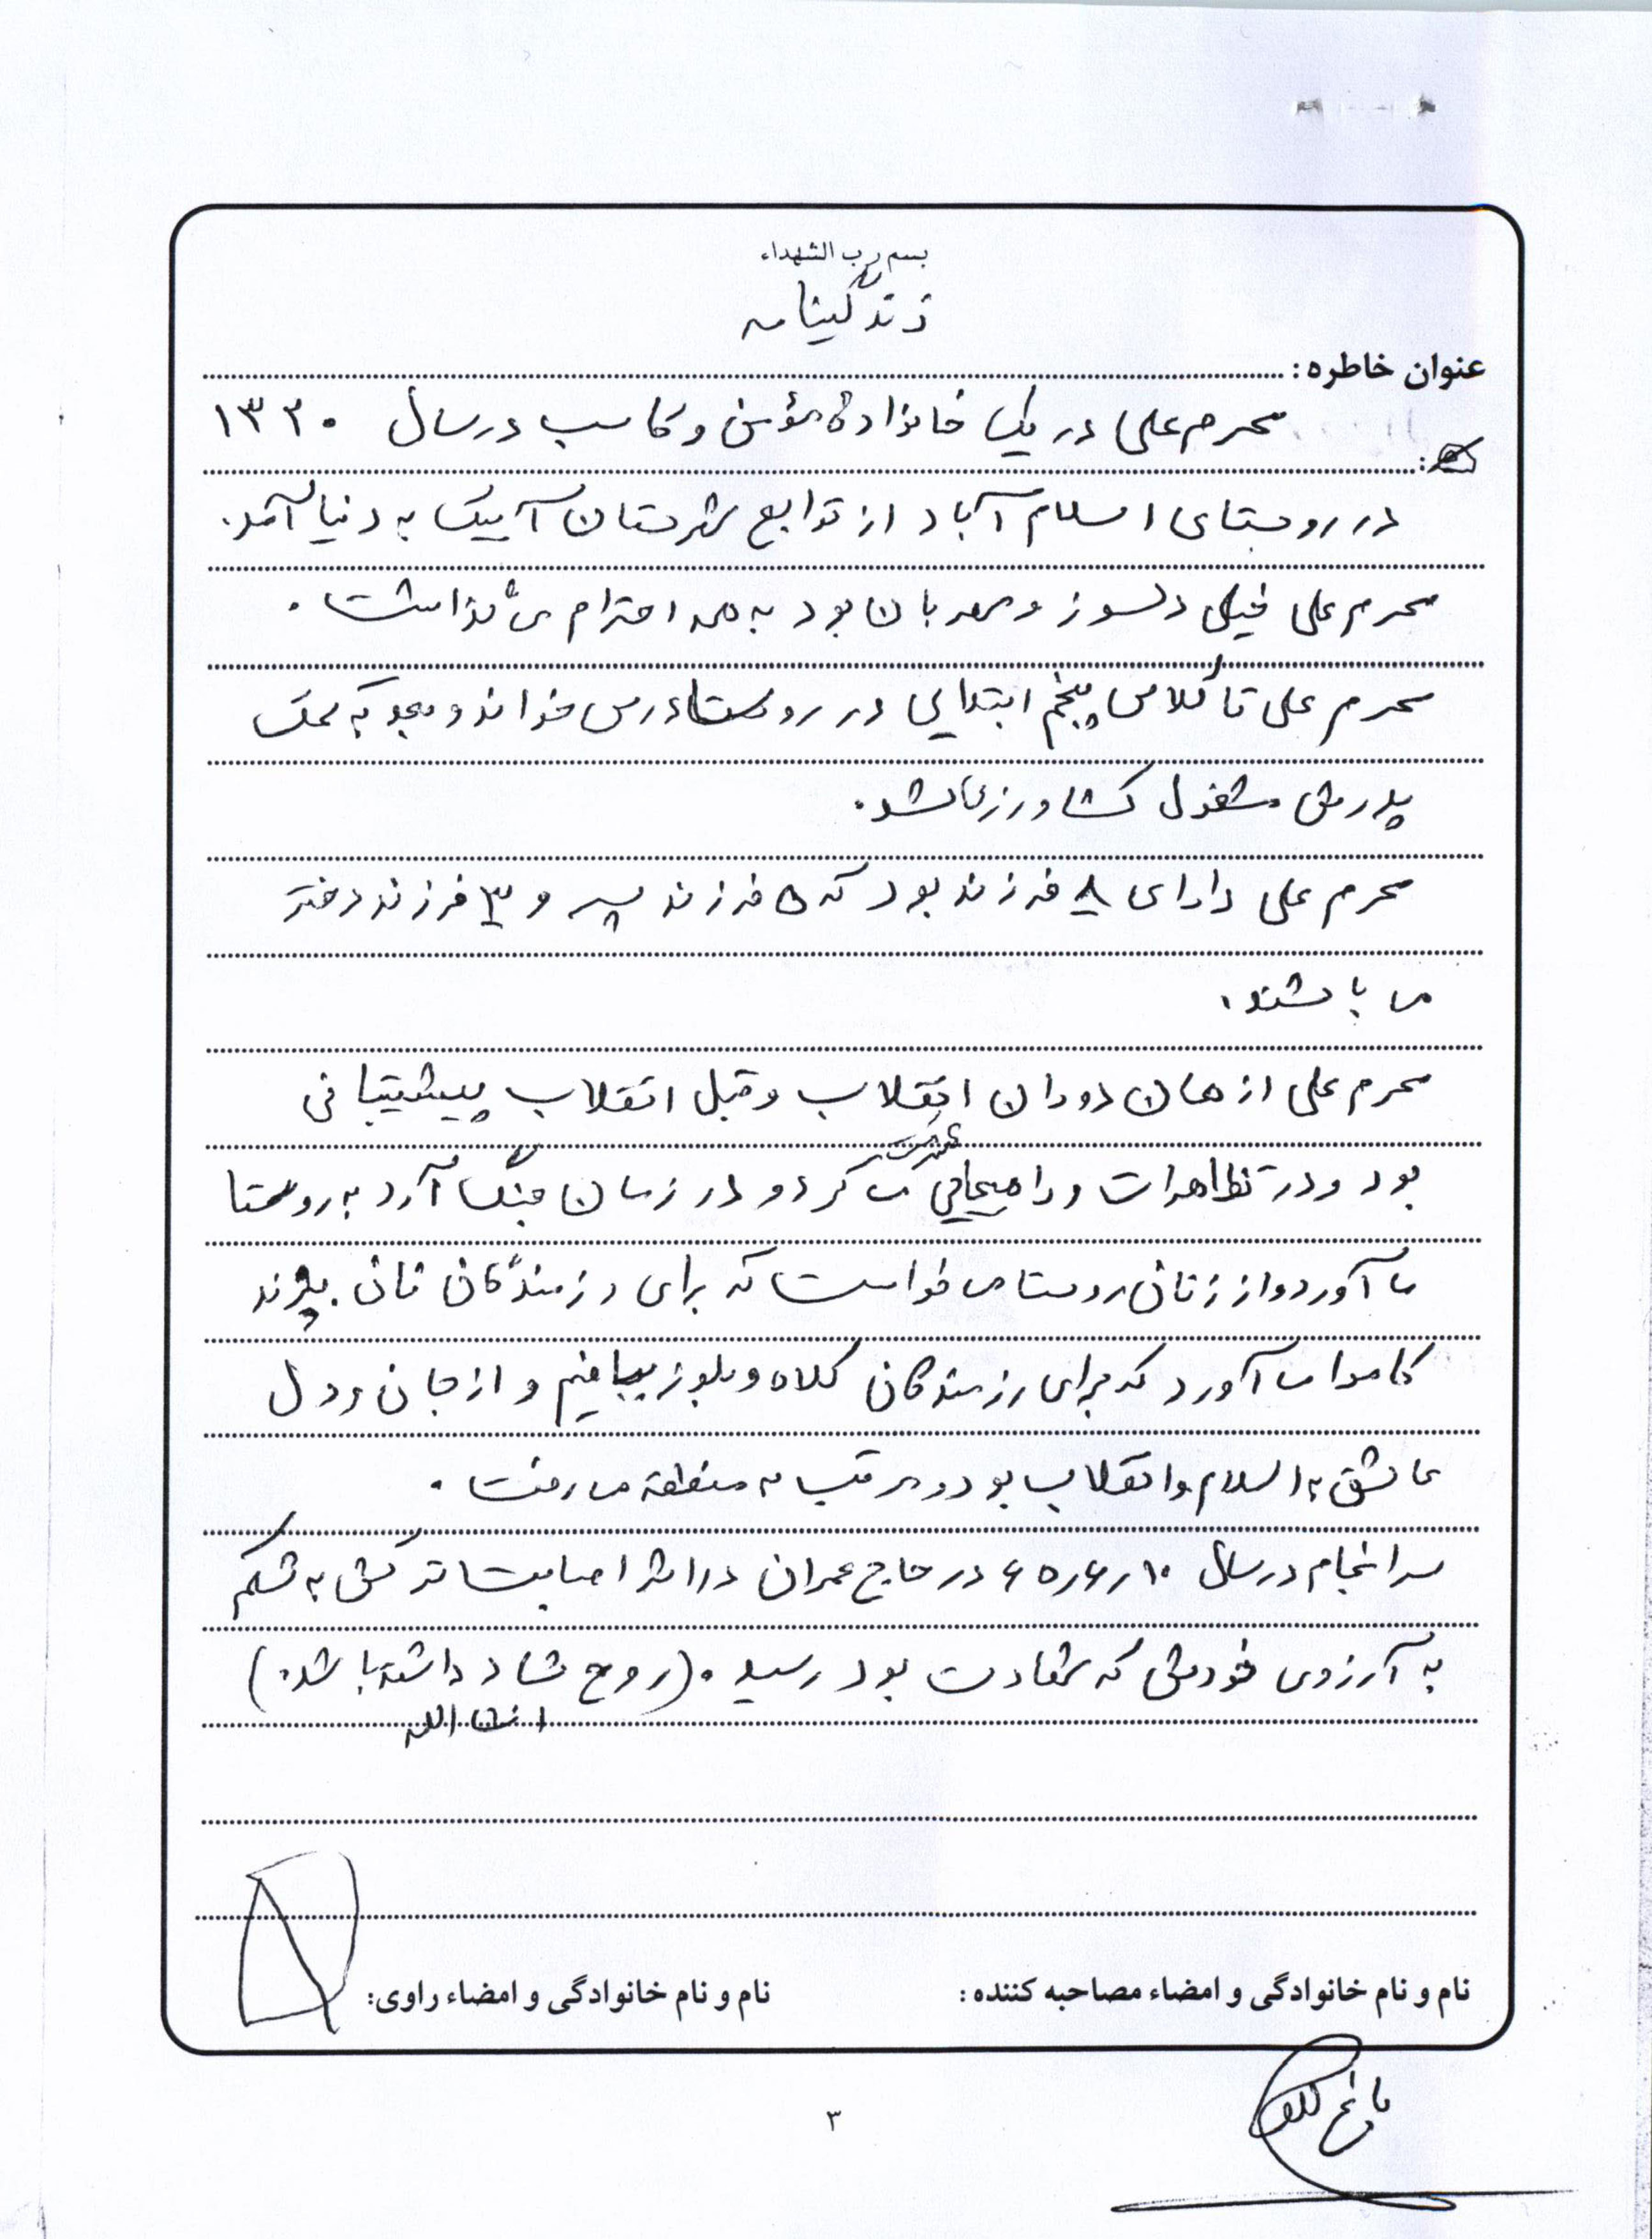 بسم رب الشهداء
زندگینامه
عنوان خاطره :
محرم علی در یک خانواده مؤمن و کاسب در سال ۱۳۲۰
در روستای اسلام آباد از توابع شهرستان آبیک به دنیا آمد.
محرم علی خیلی دلسوز و مهربان بود به همه احترام می گذاشت.
محرم علی تا کلاس پنجم ابتدایی در روستا درس خواند و بعد به کمک
پدرش مشغول کشاورزی شد.
محرم علی دارای ۸ فرزند بود که ۵ فرزند پسر و ۳ فرزند دختر
می باشند.
محرم علی از همان دوران انقلاب و قبل انقلاب پیشتیبانی
بود و در تظاهرات و راهپیمایی شرکت می کرد و در زمان جنگ آرد به روستا
می آورد و از زنان روستا می خواست که برای رزمندگان نان بپزند
کاموا می آورد که برای رزمندگان کلاه و بلوز ببافیم و از جان و دل
عاشق به اسلام و انقلاب بود و مرتب به منطقه می رفت.
سرانجام در سال ۱۰ر۶ر۶۵ در حاج عمران در اثر اصابت ترکش به شکم
به آرزوی خودش که شهادت بود رسید. (روح شاد داشته باشد.)
انشا الله
نام و نام خانوادگی و امضاء مصاحبه کننده :
نام و نام خانوادگی و امضاء راوی:
۳